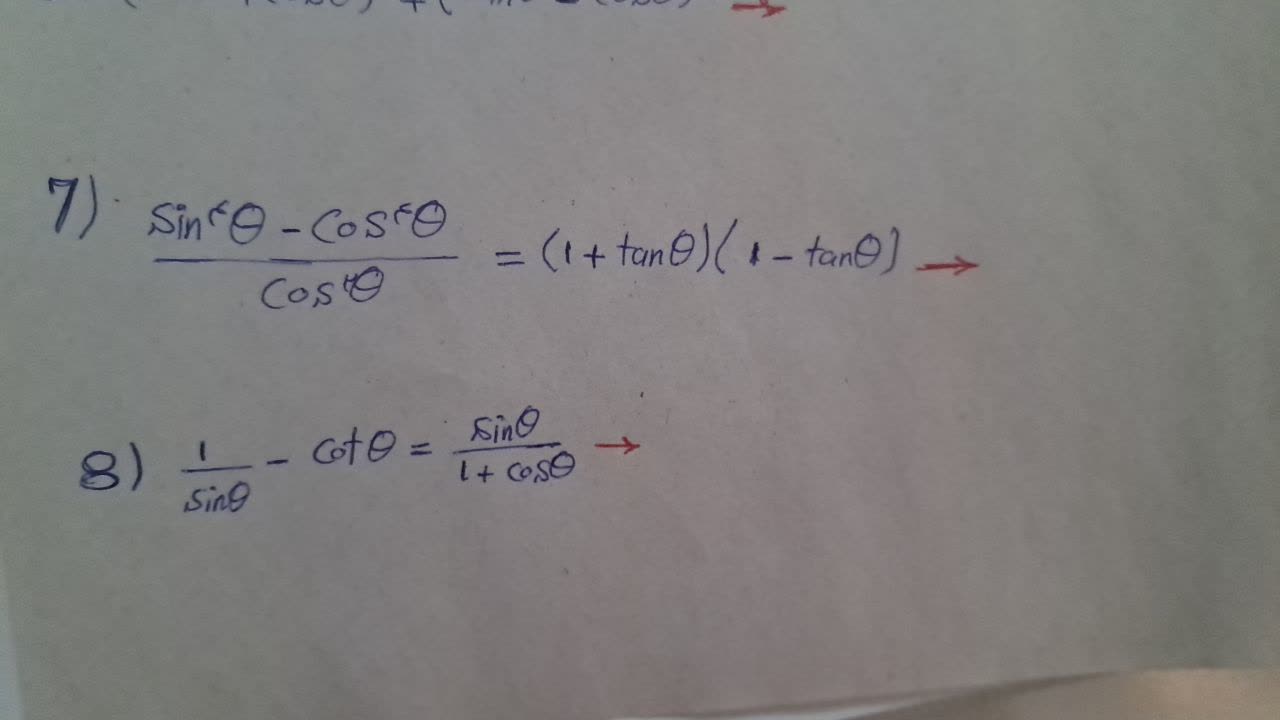 7) sin^۴θ - cos^۴θ / cos^۲θ = (1 + tanθ)(1 - tanθ) →
8) 1/sinθ - cotθ = sinθ/1 + cosθ →